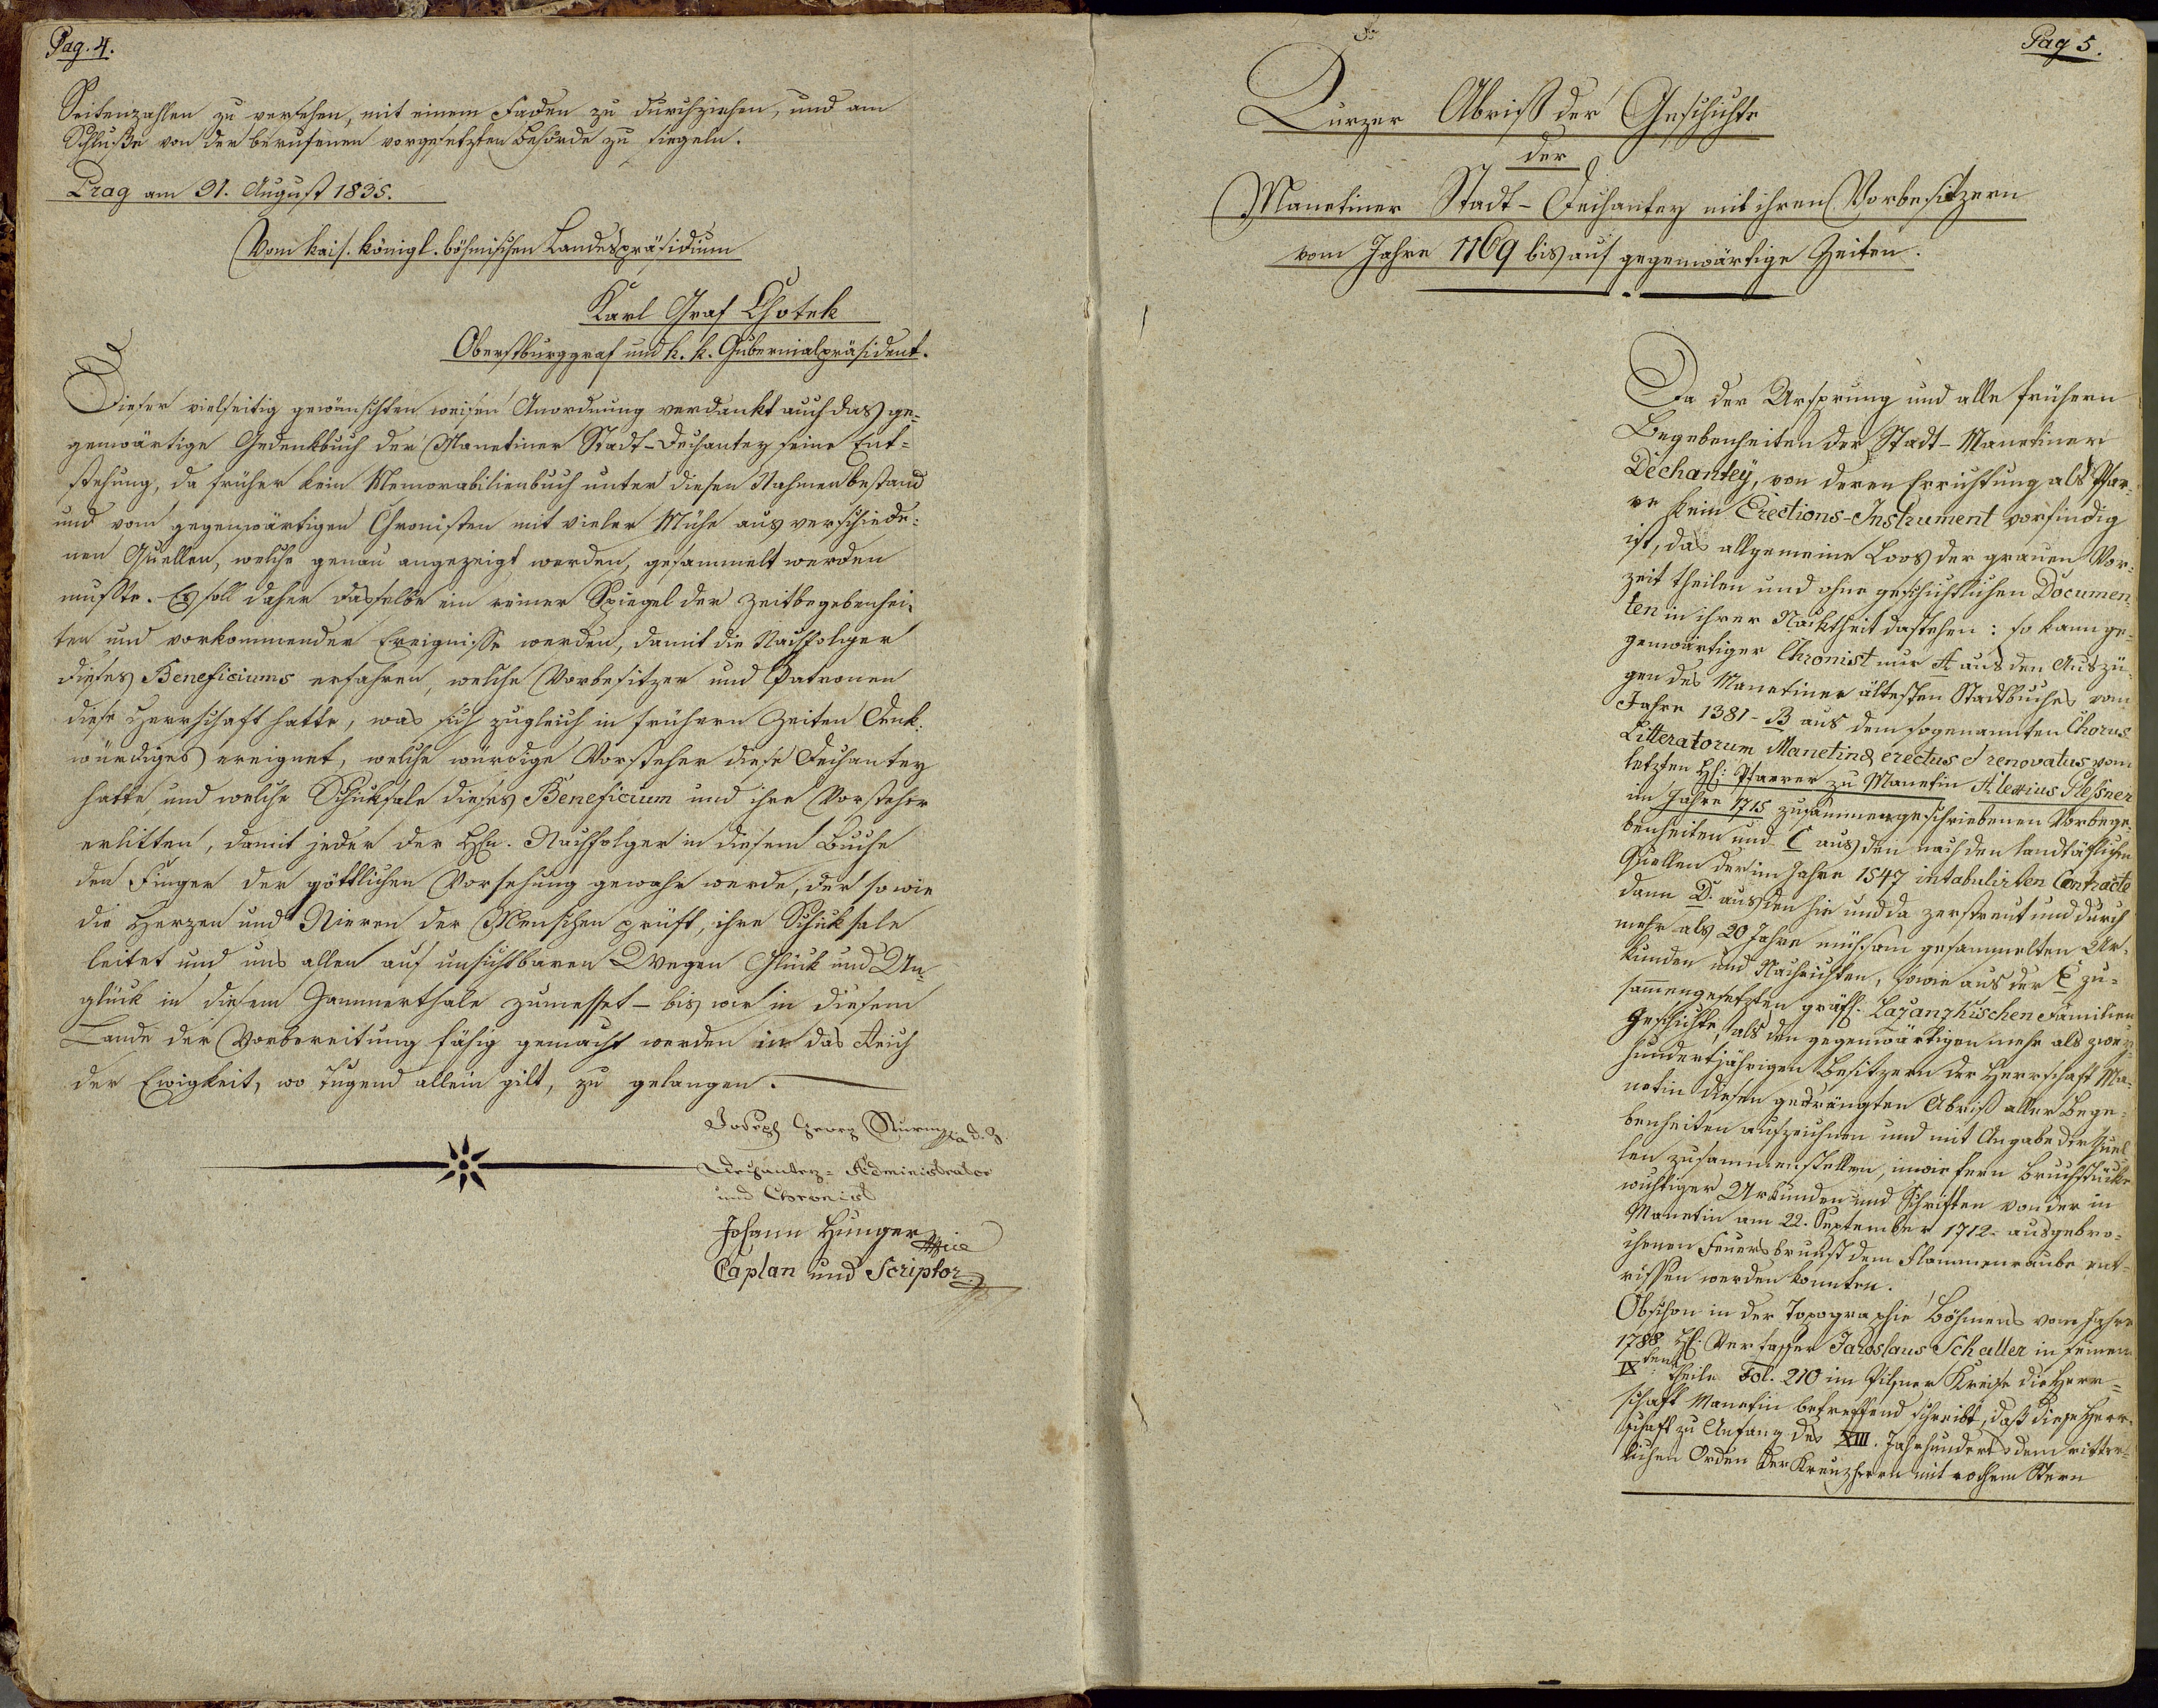 Pag. 4.
Seitenzahlen zu versehen, mit einem Faden zu durchziehen, und am
Schluße von der berufenen vorgesetzten Behörde zu siegeln.
Prag am 31. August 1835.
Vom kais. königl. böhmischen Landespräsidium
Karl Graf Chotek
Oberstburggraf und k. k. Gubernialpräsident.
Dieser vielseitig gewünschten weisen Anordnung verdankt auch das ge-
genwärtige Gedenkbuch der Manetiner Stadt-Dechantey seine Ent-
stehung, da früher kein Memorabilienbuch unter diesen Nahmen bestand
und vom gegenwärtigen Chronisten mit vieler Mühe aus verschiede-
nen Quellen, welche genau angezeigt werden, gesammelt werden
mußte. Es soll daher dasselbe ein reiner Spiegel der Zeitbegebenhei-
ten und vorkommender Ereignisse werden, damit die Nachfolger
dieses Beneficiums erfahren, welche Vorbesitzer und Patronen
diese Herrschaft hatte, was sich zugleich in frühern Zeiten Denk-
würdiges ereignet, welche würdige Vorsteher diese Dechantey
hatte, und welche Schicksale dieses Beneficium und ihre Vorsteher
erlitten, damit jeder der Hhn. Nachfolger in diesem Buche
den Finger der göttlichen Vorsehung gewahr werde, der so wie
die Herzen und Nieren der Menschen prüft, ihre Schicksale
leitet und uns allen auf unsichtbaren Wegen Glück und Un-
glück in diesem Jammerthale zumesset - bis wir in diesem
Lande der Vorbereitung fähig gemacht werden in das Reich
der Ewigkeit, wo Tugend allein gilt, zu gelangen.
Joseph Georg d. Z.
Dechantey-Administrator
und Chronist
Johann Hunger
Caplan und Scriptor
Pag 5.
Kurzer Abriß der Geschichte
der
Manetiner Stadt-Dechantey mit ihren Vorbesitzern
vom Jahre 1169 bis auf gegenwärtige Zeiten.
Da der Ursprung und alle frühern
Begebenheiten der Stadt-Manetiner
Dechanteÿ, von deren Errichtung als Pfar-
re kein Erections-Instrument vorfindig
ist, das allgemeine Loos der grauen Vor-
zeit theilen und ohne geschichtlichen Documen-
ten in ihrer Nacktheit dastehen: so kann ge-
genwärtiger Chronist nur A aus den Auszü-
gen des Manetiner ältesten Stadtbuches vom
Jahre 1381 - B aus dem sogenannten Chorus
Litteratorum Manetinæ erectus et renovatus vom
letzten H: Pfarrer zu Manetin Alexius Pleßner
im Jahre 1715 zusammengeschriebenen Vorbege-
benheiten und C aus den nach den landtäflichen
Quellen der im Jahre 1547 intabulirten Contracte
dann D. aus den hie und da zerstreut und durch
mehr als 20 Jahre mühsam gesammelten Ur-
kunden und Nachrichten, sowie aus der E zu-
sam̄engesetzten gräfl. Lažanzkischen Familien-
geschichte, als den gegenwärtigen mehr als zwey-
hundertjährigen Besitzern der Herrschaft Ma-
netin diesen gedrängten Abriß aller Bege-
benheiten aufzeichnen und mit Angabe der Quel-
len zusammenstellen, inwiefern Bruchstücke
wichtiger Urkunden und Schriften von der in
Manetin am 22. September 1712 ausgebro-
chenen Feuersbrunst dem Flammenraube ent-
rissen werden konnten.
Obschon in der Topographie Böhmens vom Jahre
1788 H. Verfasser Jaroslaus Schaller in seinem
IXten Theile Fol. 210 im Pilsner Kreise die Herr-
schaft Manetin betreffend schreibt, daß diese Herr-
schaft zu Anfang des XIII. Jahrhunderts dem ritter-
lichen Orden der Kreuzherrn mit rothem Stern